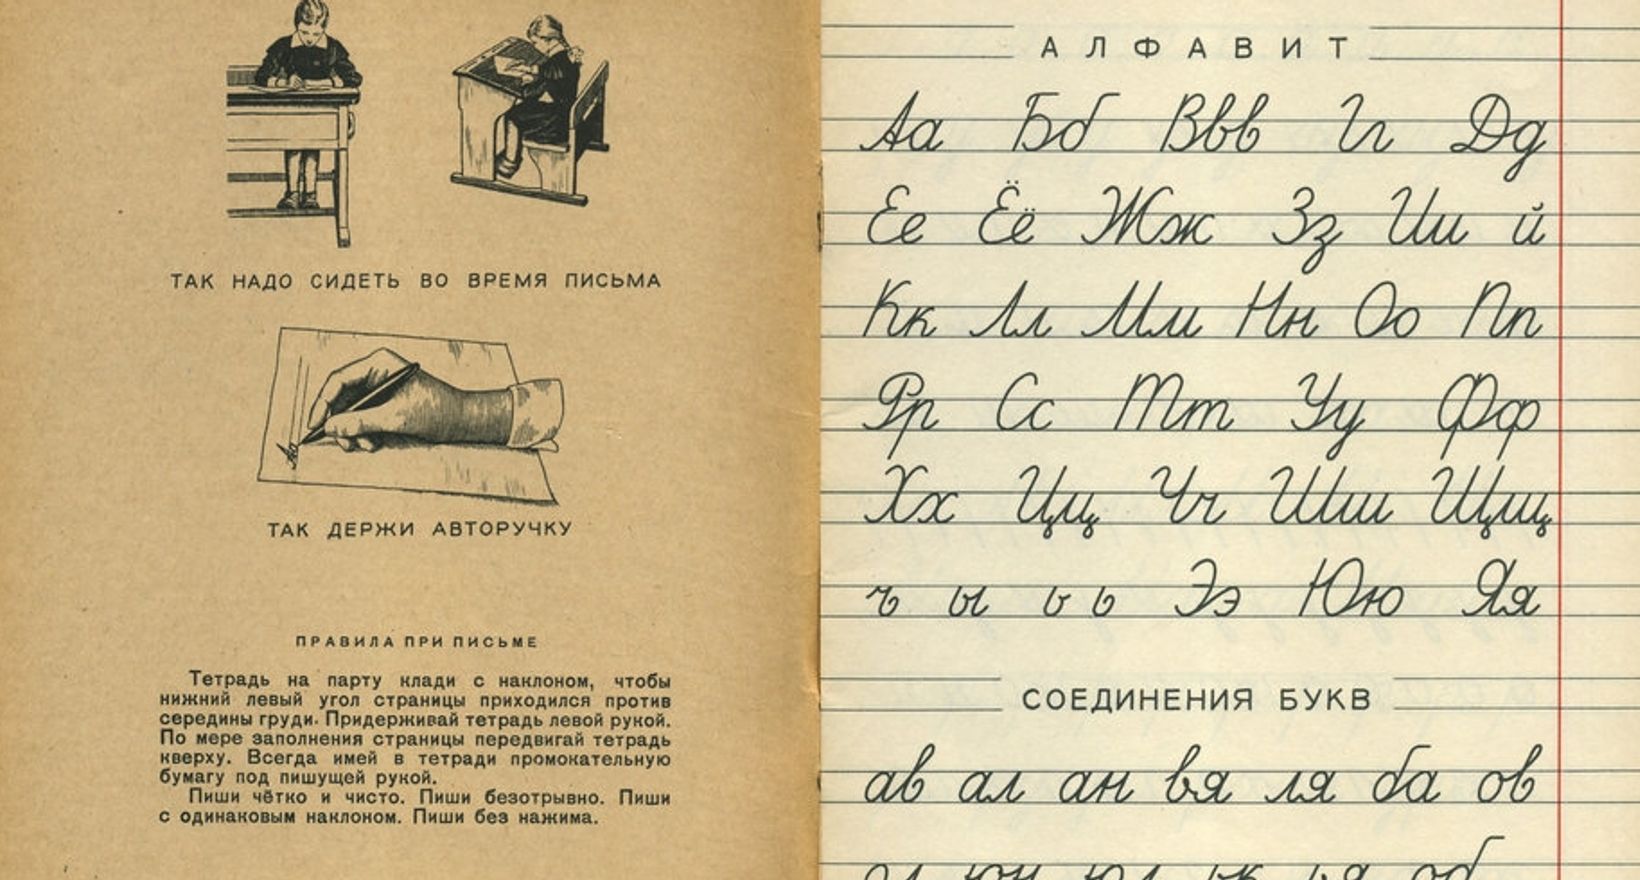 ТАК НАДО СИДЕТЬ ВО ВРЕМЯ ПИСЬМА
ТАК ДЕРЖИ АВТОРУЧКУ
ПРАВИЛА ПРИ ПИСЬМЕ
Тетрадь на парту клади с наклоном, чтобы
нижний левый угол страницы приходился против
середины груди. Придерживай тетрадь левой рукой.
По мере заполнения страницы передвигай тетрадь
кверху. Всегда имей в тетради промокательную
бумагу под пишущей рукой.
Пиши чётко и чисто. Пиши безотрывно. Пиши
с одинаковым наклоном. Пиши без нажима.
АЛФАВИТ
Аа Бб Ввв Гг Дд
Ее Ёё Жж Зз Ии й
Кк Лл Мм Нн Оо Пп
Рр Сс Тт Уу Фф
Хх Цц Чч Шш Щщ
ъ ы ь ь Ээ Юю Яя
СОЕДИНЕНИЯ БУКВ
ав ал ан вя ля ба ов